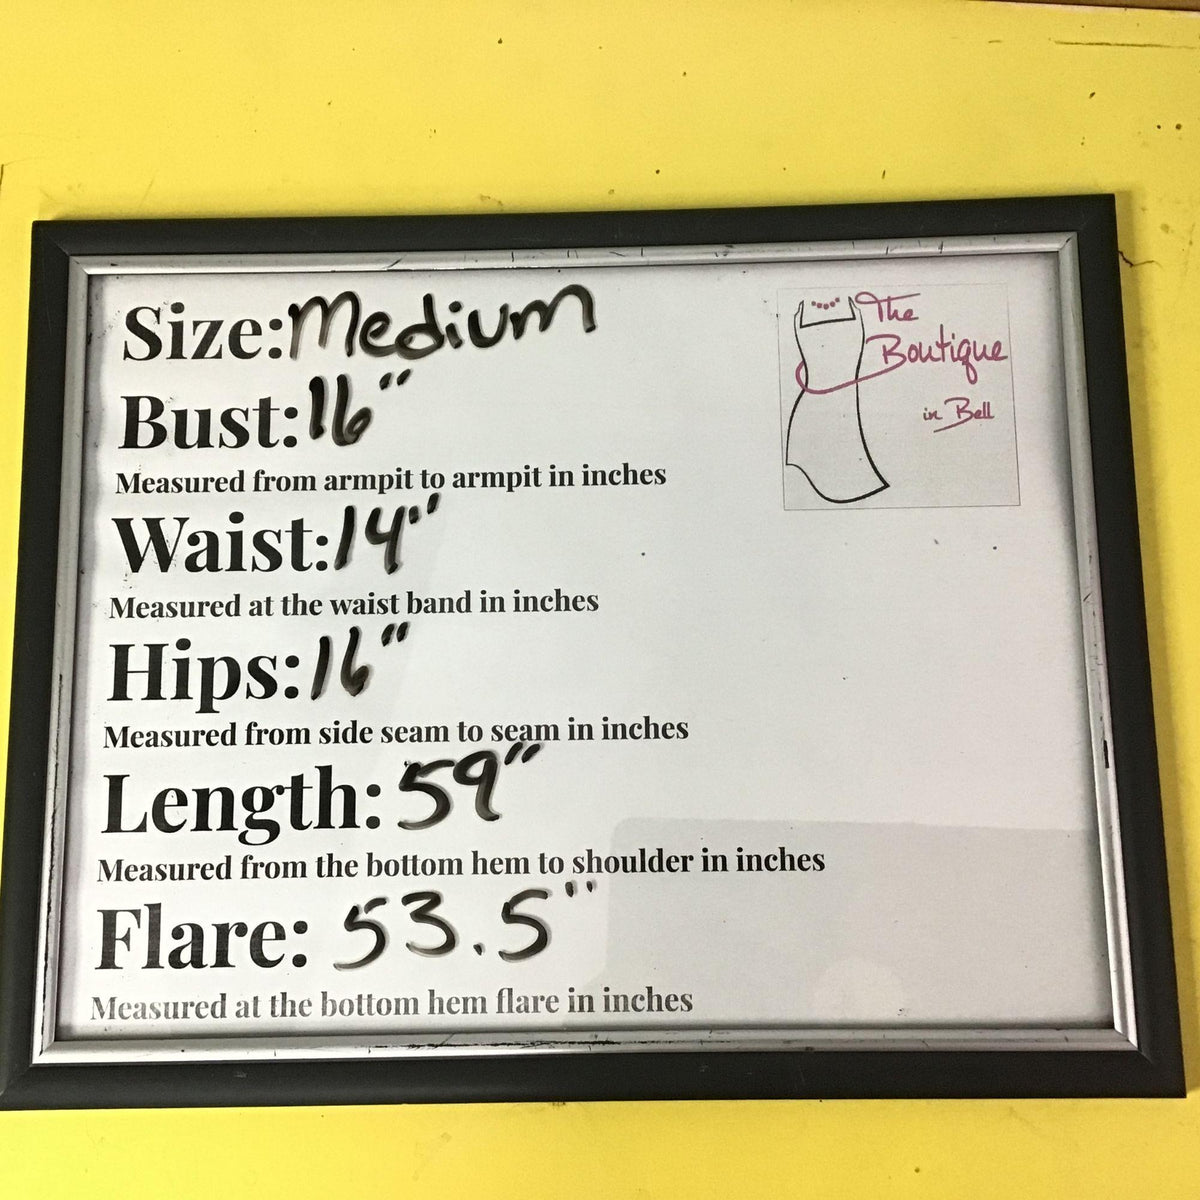 Size: Medium
Bust: 16"
Measured from armpit to armpit in inches
Waist: 14"
Measured at the waist band in inches
Hips: 16"
Measured from side seam to seam in inches
Length: 59"
Measured from the bottom hem to shoulder in inches
Flare: 53.5"
Measured at the bottom hem flare in inches
The
Boutique
in Bell